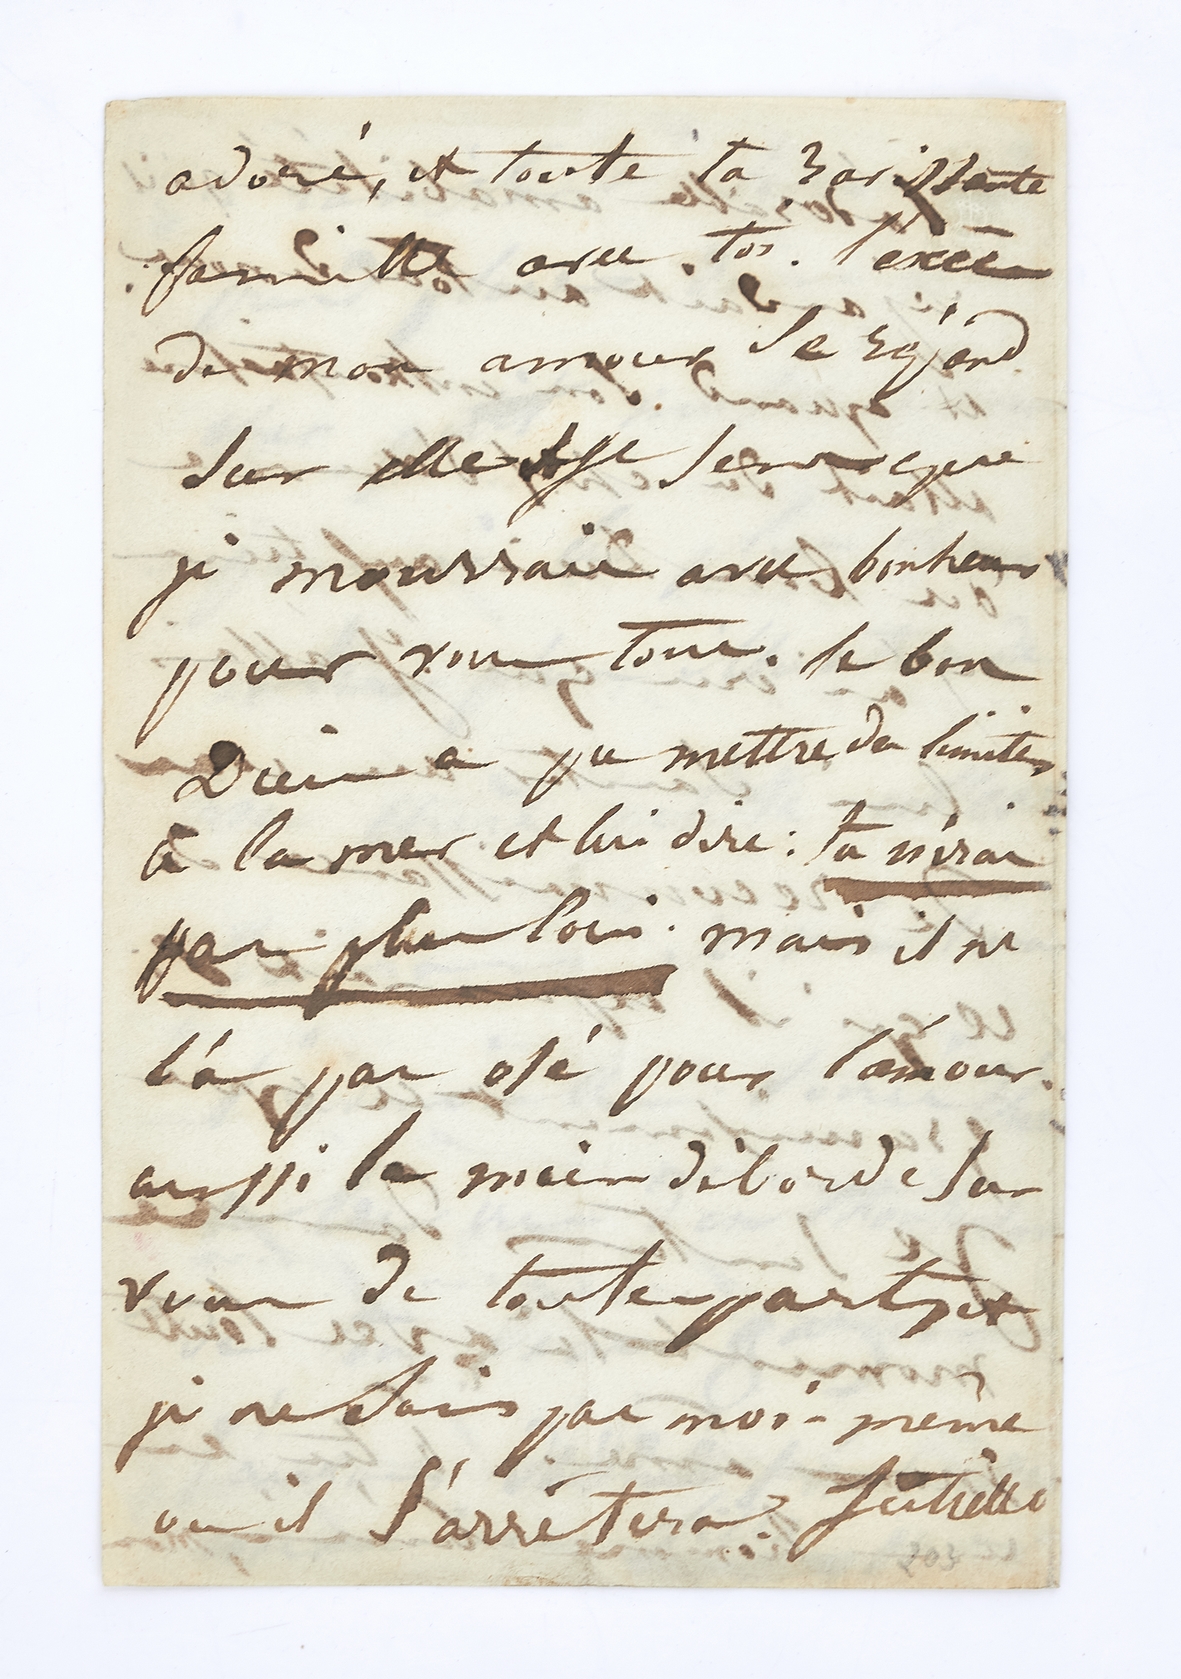 adoré, et toute ta ravissante
famille avec toi. L'excès
de mon amour se répand
sur elle et je sens que
je mourrais avec bonheur
pour vous tous. Le bon
Dieu a pu mettre des limites
à la mer et lui dire : tu n'iras
pas plus loin. mais il ne
l'a pas osé pour l'amour.
aussi le mien déborde sur
vous de toutes parts et
je ne sais pas moi-même
où il s'arrêtera. Juliette